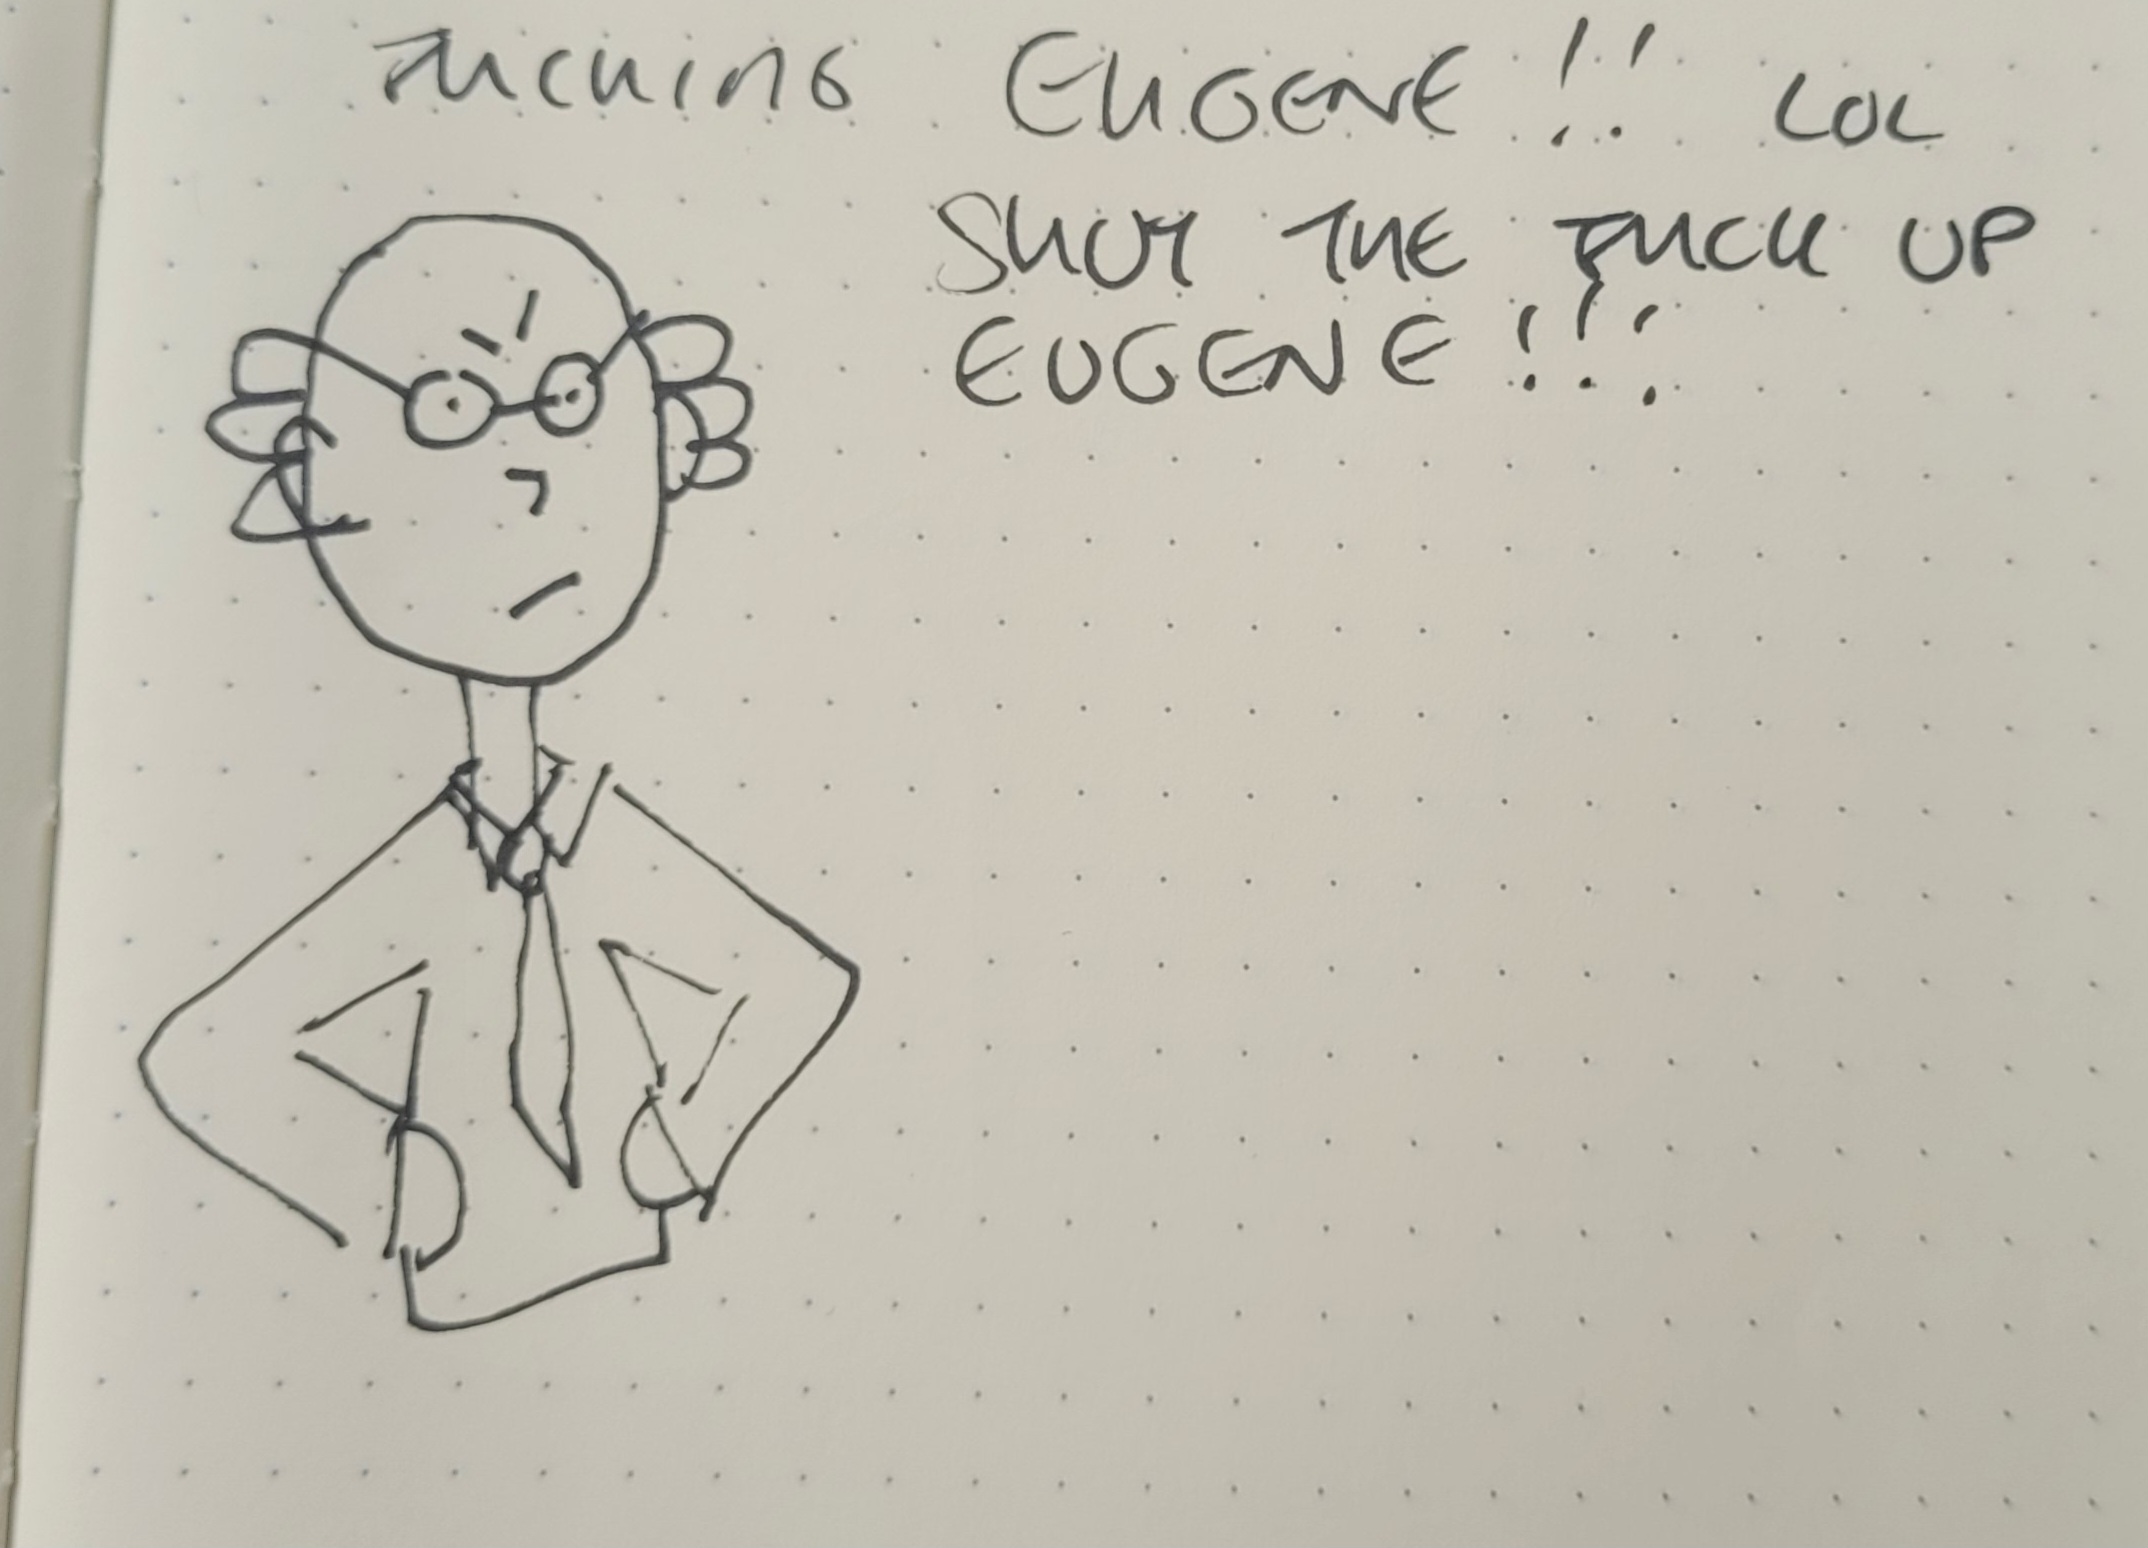 FUCKING EUGENE!! LOL
SHUT THE FUCK UP
EUGENE!!!